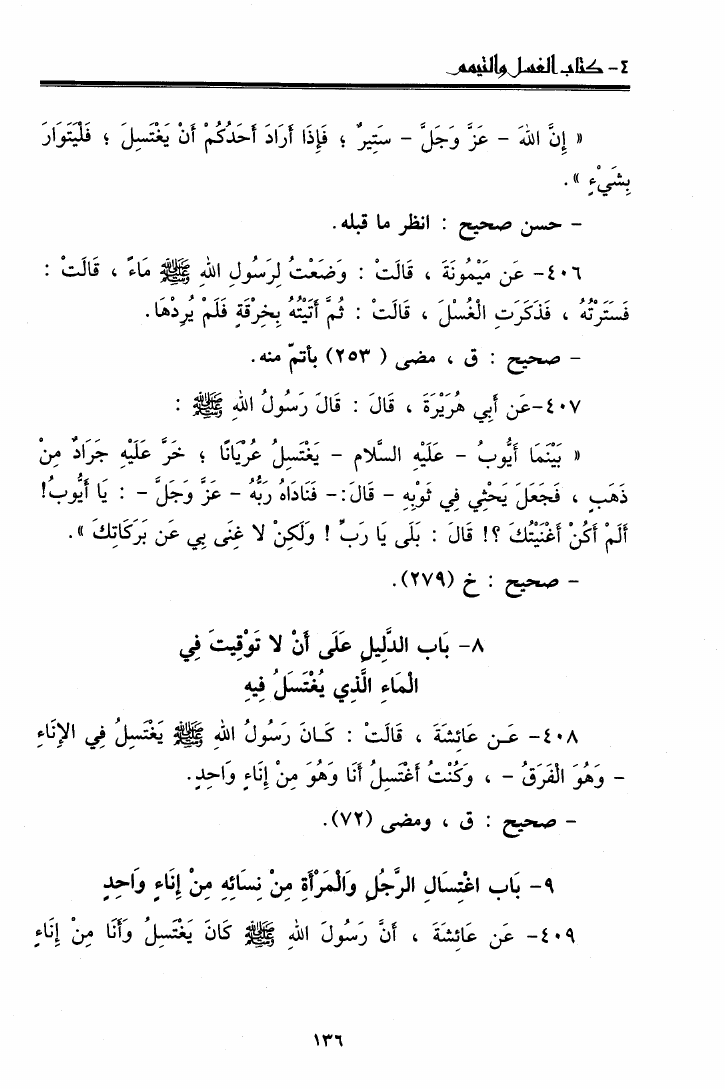 ٤- كتاب الغسل والتيمم
« إِنَّ اللهَ - عَزَّ وَجَلَّ - سَتِيرٌ ؛ فَإِذَا أَرَادَ أَحَدُكُمْ أَنْ يَغْتَسِلَ ؛ فَلْيَتَوَارَ
بِشَيْءٍ ».
- حسن صحيح : انظر ما قبله.
٤٠٦- عَن مَيْمُونَةَ ، قَالَتْ : وَضَعْتُ لِرَسُولِ اللهِ ﷺ مَاءً ، قَالَتْ :
فَسَتَرْتُهُ ، فَذَكَرَتِ الْغُسْلَ ، قَالَتْ : ثُمَّ أَتَيْتُهُ بِخِرْقَةٍ فَلَمْ يُرِدْهَا.
- صحيح : ق ، مضى ( ٢٥٣) بأتمّ منه.
٤٠٧-عَن أَبِي هُرَيْرَةَ ، قَالَ : قَالَ رَسُولُ اللهِ ﷺ :
« بَيْنَمَا أَيُّوبُ - عَلَيْهِ السَّلام - يَغْتَسِلُ عُرْيَانًا ؛ خَرَّ عَلَيْهِ جَرَادٌ مِنْ
ذَهَبٍ ، فَجَعَلَ يَحْثِي فِي ثَوْبِهِ - قَالَ:- فَنَادَاهُ رَبُّهُ - عَزَّ وَجَلَّ - : يَا أَيُّوبُ!
أَلَمْ أَكُنْ أَغْنَيْتُكَ ؟! قَالَ : بَلَى يَا رَبِّ ! وَلَكِنْ لا غِنَى بِي عَن بَرَكَاتِكَ ».
- صحيح : خ (٢٧٩).
٨- بَاب الدَّلِيلِ عَلَى أَنْ لا تَوْقِيتَ فِي
الْمَاءِ الَّذِي يُغْتَسَلُ فِيهِ
٤٠٨- عَـن عَائِشَةَ ، قَالَتْ : كَـانَ رَسُولُ اللهِ ﷺ يَغْتَسِلُ فِي الإِنَاءِ
- وَهُوَ الْفَرَقُ - ، وَكُنْتُ أَغْتَسِلُ أَنَا وَهُوَ مِنْ إِنَاءٍ وَاحِدٍ.
- صحيح : ق ، ومضى (٧٢).
٩- بَاب اغْتِسَالِ الرَّجُلِ وَالْمَرْأَةِ مِنْ نِسَائِهِ مِنْ إِنَاءٍ وَاحِدٍ
٤٠٩- عَن عَائِشَةَ ، أَنَّ رَسُولَ اللهِ ﷺ كَانَ يَغْتَسِلُ وَأَنَا مِنْ إِنَاءٍ
١٣٦